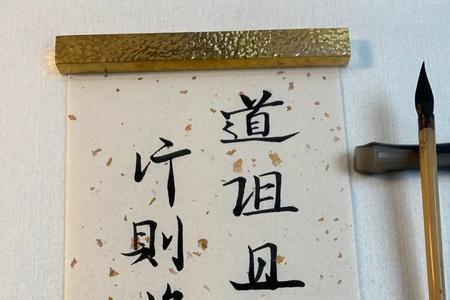 道阻且
行則